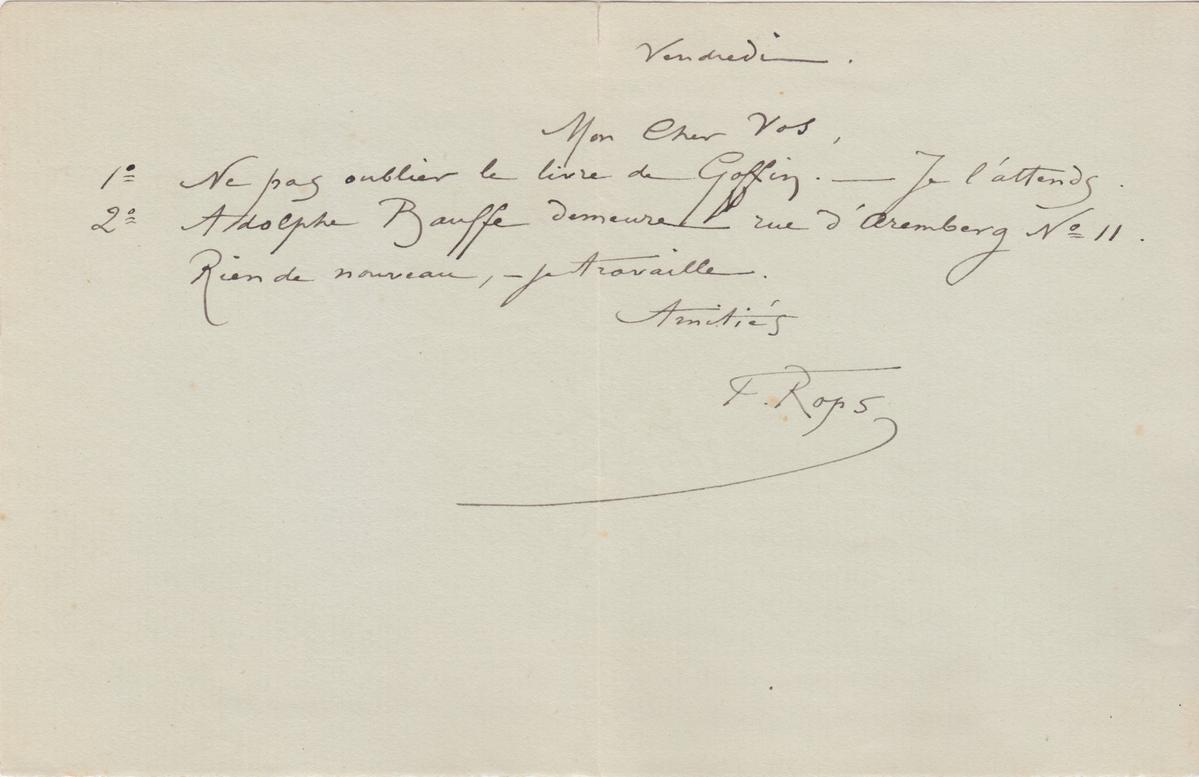 Vendredi .
Mon Cher Vos,
1º Ne pas oublier le livre de Goffin. — Je l'attends.
2º Adolphe Bauffe demeure rue d'Aremberg Nº 11.
Rien de nouveau, – je travaille.
Amitiés
F. Rops